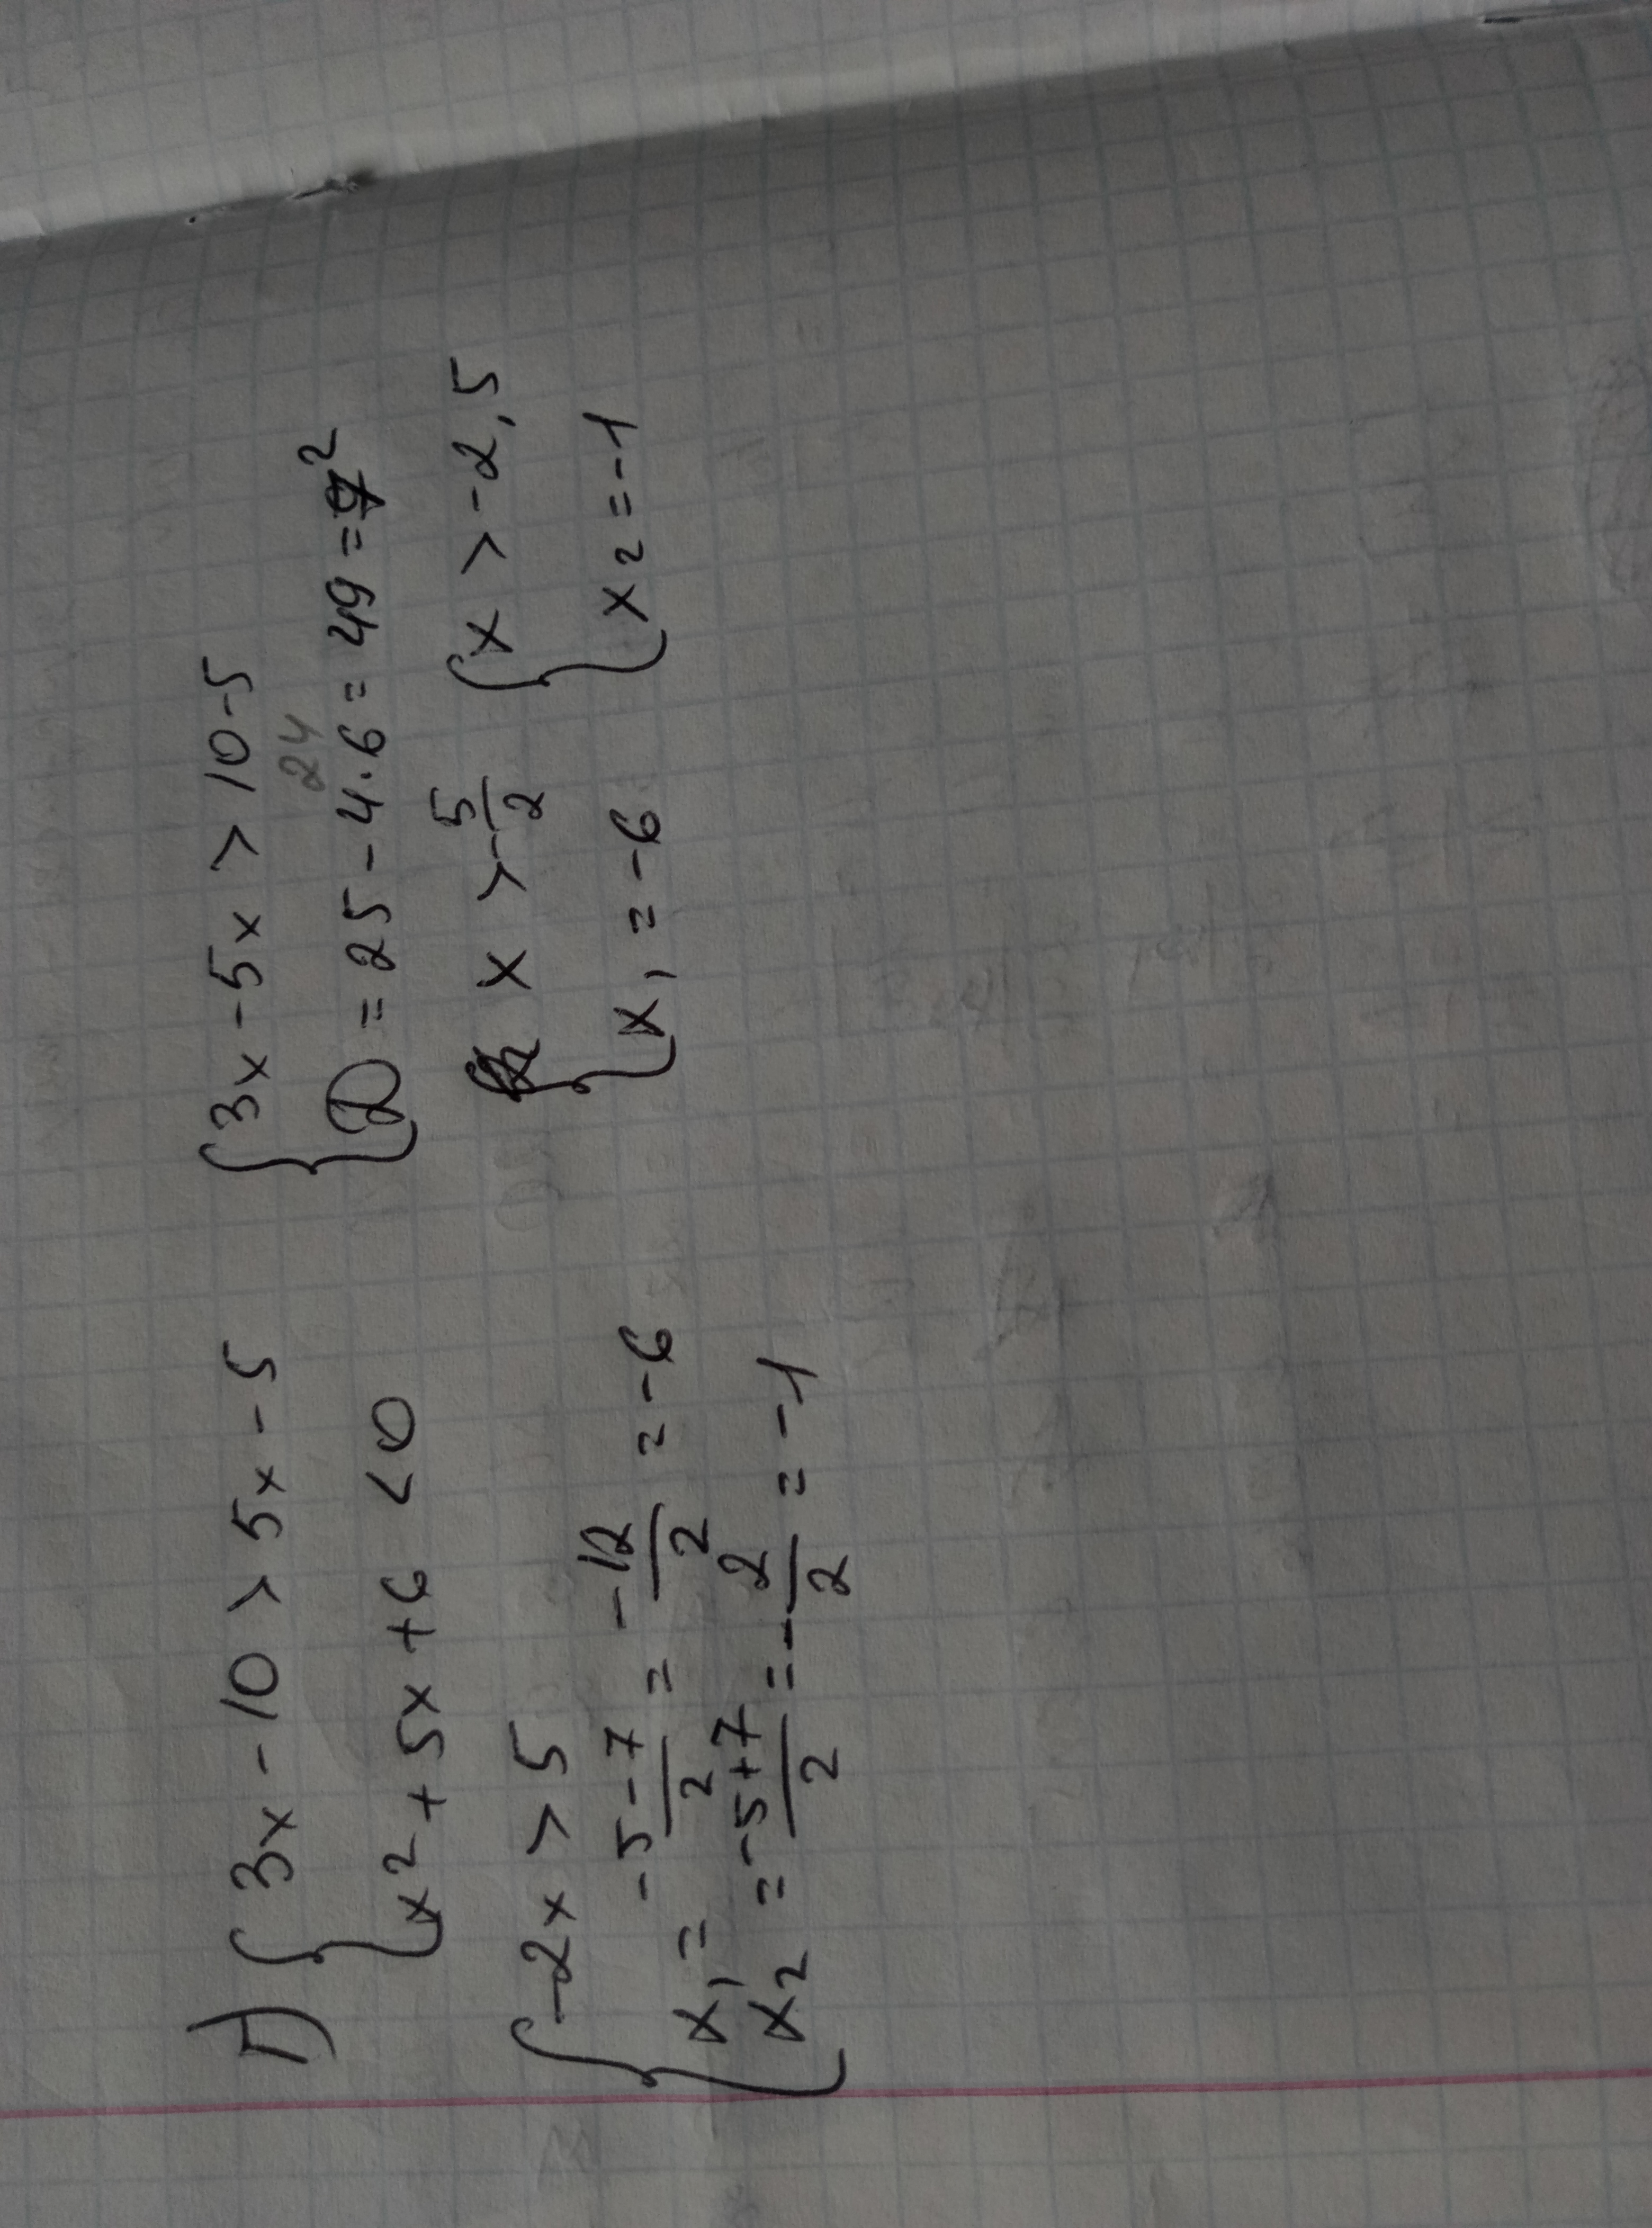 г) { 3x - 10 > 5x - 5
x² + 5x + 6 < 0
{ 3x - 5x > 10 - 5
24
D = 25 - 4·6 = 49 = 7²
{ -2x > 5
x₁ = -5-7/2 = -12/2 = -6
x₂ = -5+7/2 = -2/2 = -1
{ x > -5/2
x₁ = -6
{ x > -2,5
x₂ = -1